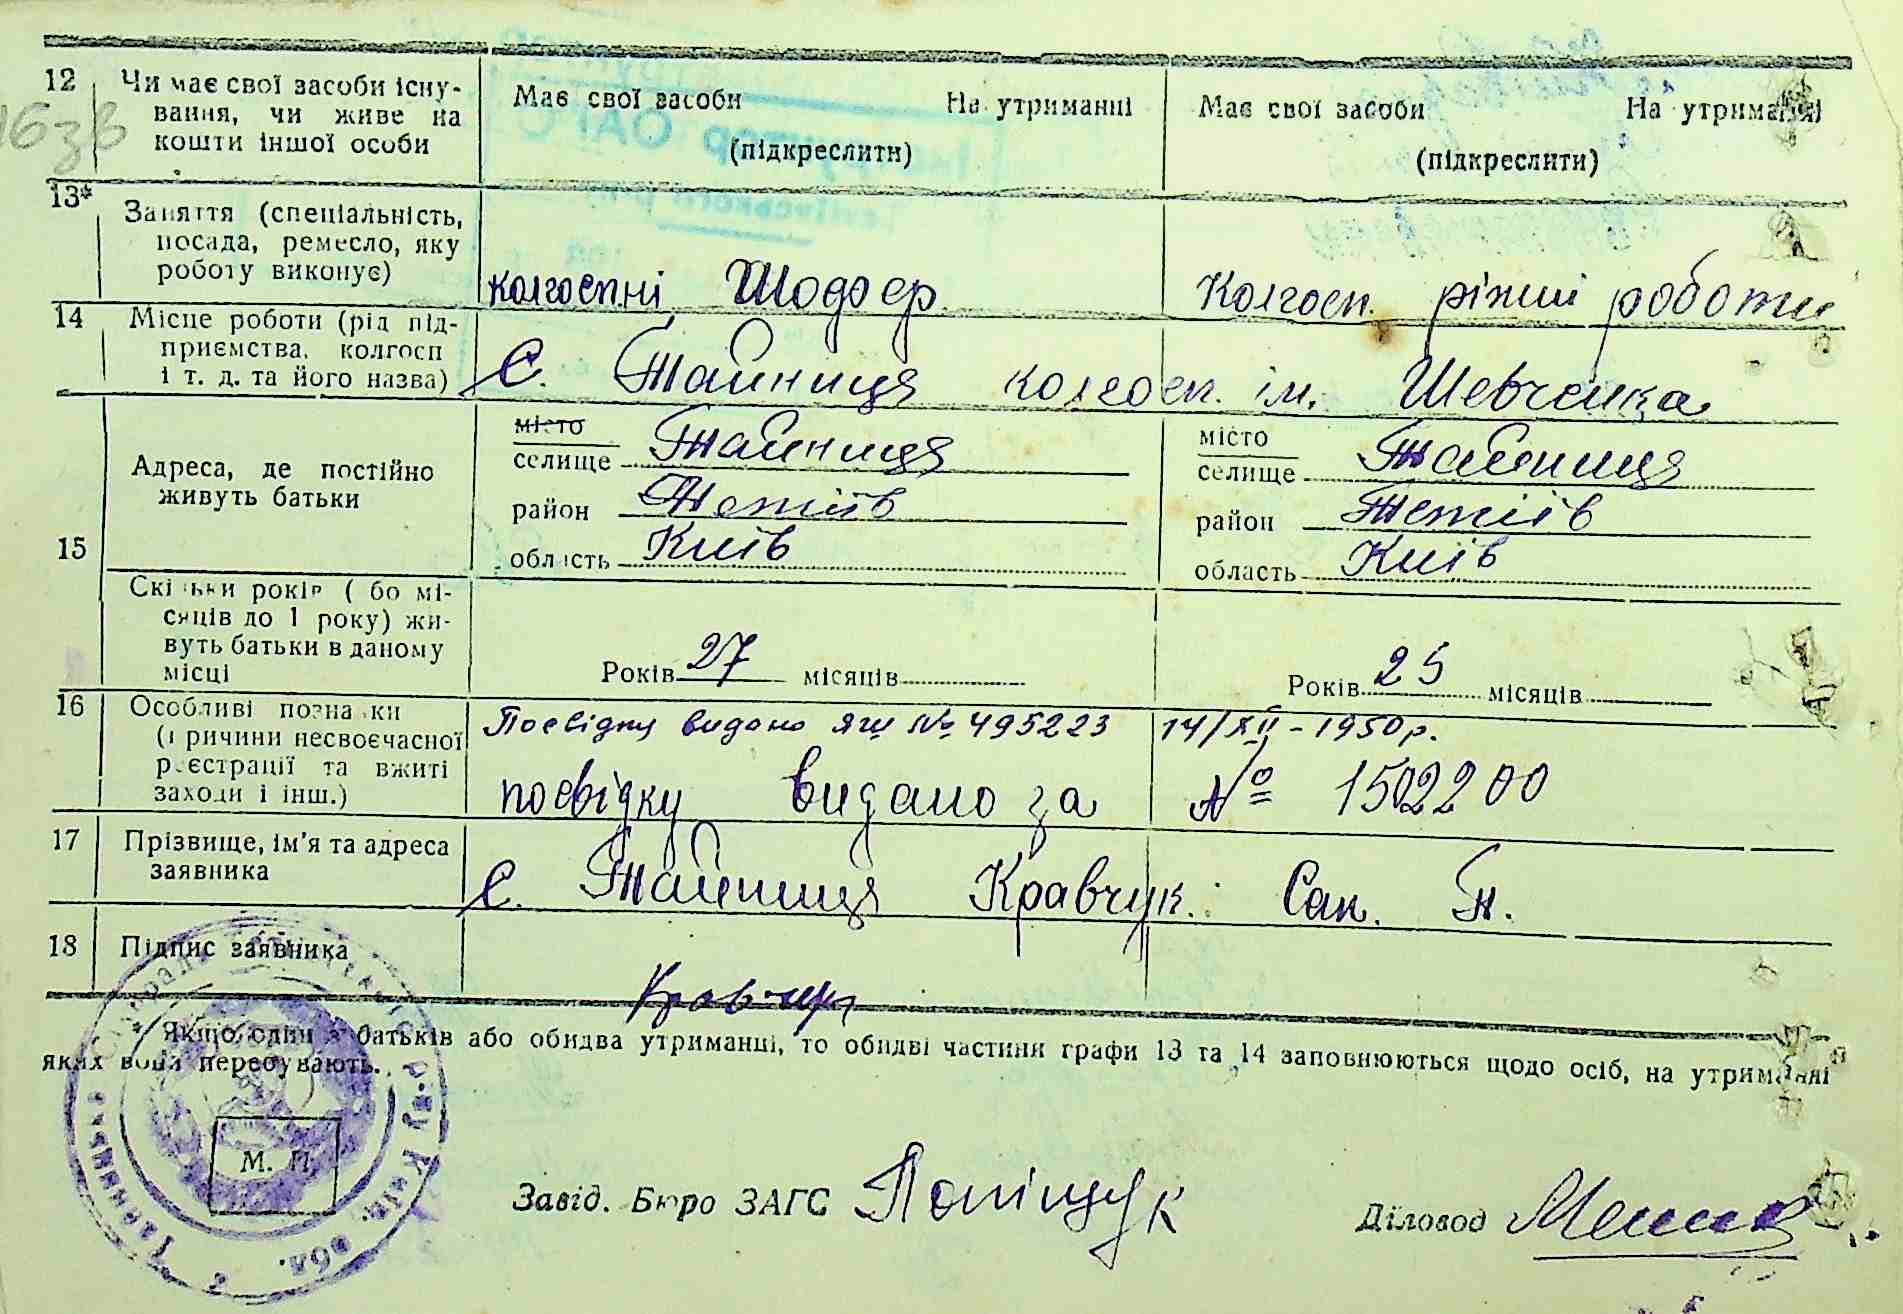 12 Чи має свої засоби існу-
вання, чи живе на
кошти іншої особи
Має свої засоби На утриманні
(підкреслити)
Має свої засоби На утриманні
(підкреслити)
13* Заняття (спеціальність,
посада, ремесло, яку
роботу виконує)
колгоспні Шофер
Колгосп. ріжні роботи
14 Місце роботи (рід під-
приємства, колгосп
і т. д. та його назва)
С. Тайниця колгосп. ім. Шевченка
15 Адреса, де постійно
живуть батьки
місто
селище Тайниця
район Тетіїв
область Київ
місто
селище Тайниця
район Тетіїв
область Київ
Скільки років ( бо мі-
сяців до 1 року) жи-
вуть батьки в даному
місці
Років 27 місяців
Років 25 місяців
16 Особливі познаки
(причини несвоєчасної
реєстрації та вжиті
заходи і інш.)
Посвідку видано ЯШ № 495223 14/XII - 1950 р.
посвідку видано за № 1502200
17 Прізвище, ім'я та адреса
заявника
С. Тайниця Кравчук. Сак. Т.
18 Підпис заявника
Кравчук
* Якщо один з батьків або обидва утриманці, то обидві частини графи 13 та 14 заповнюються щодо осіб, на утриманні
яких вони перебувають.
М. П.
Завід. Бюро ЗАГС Поліщук
Діловод